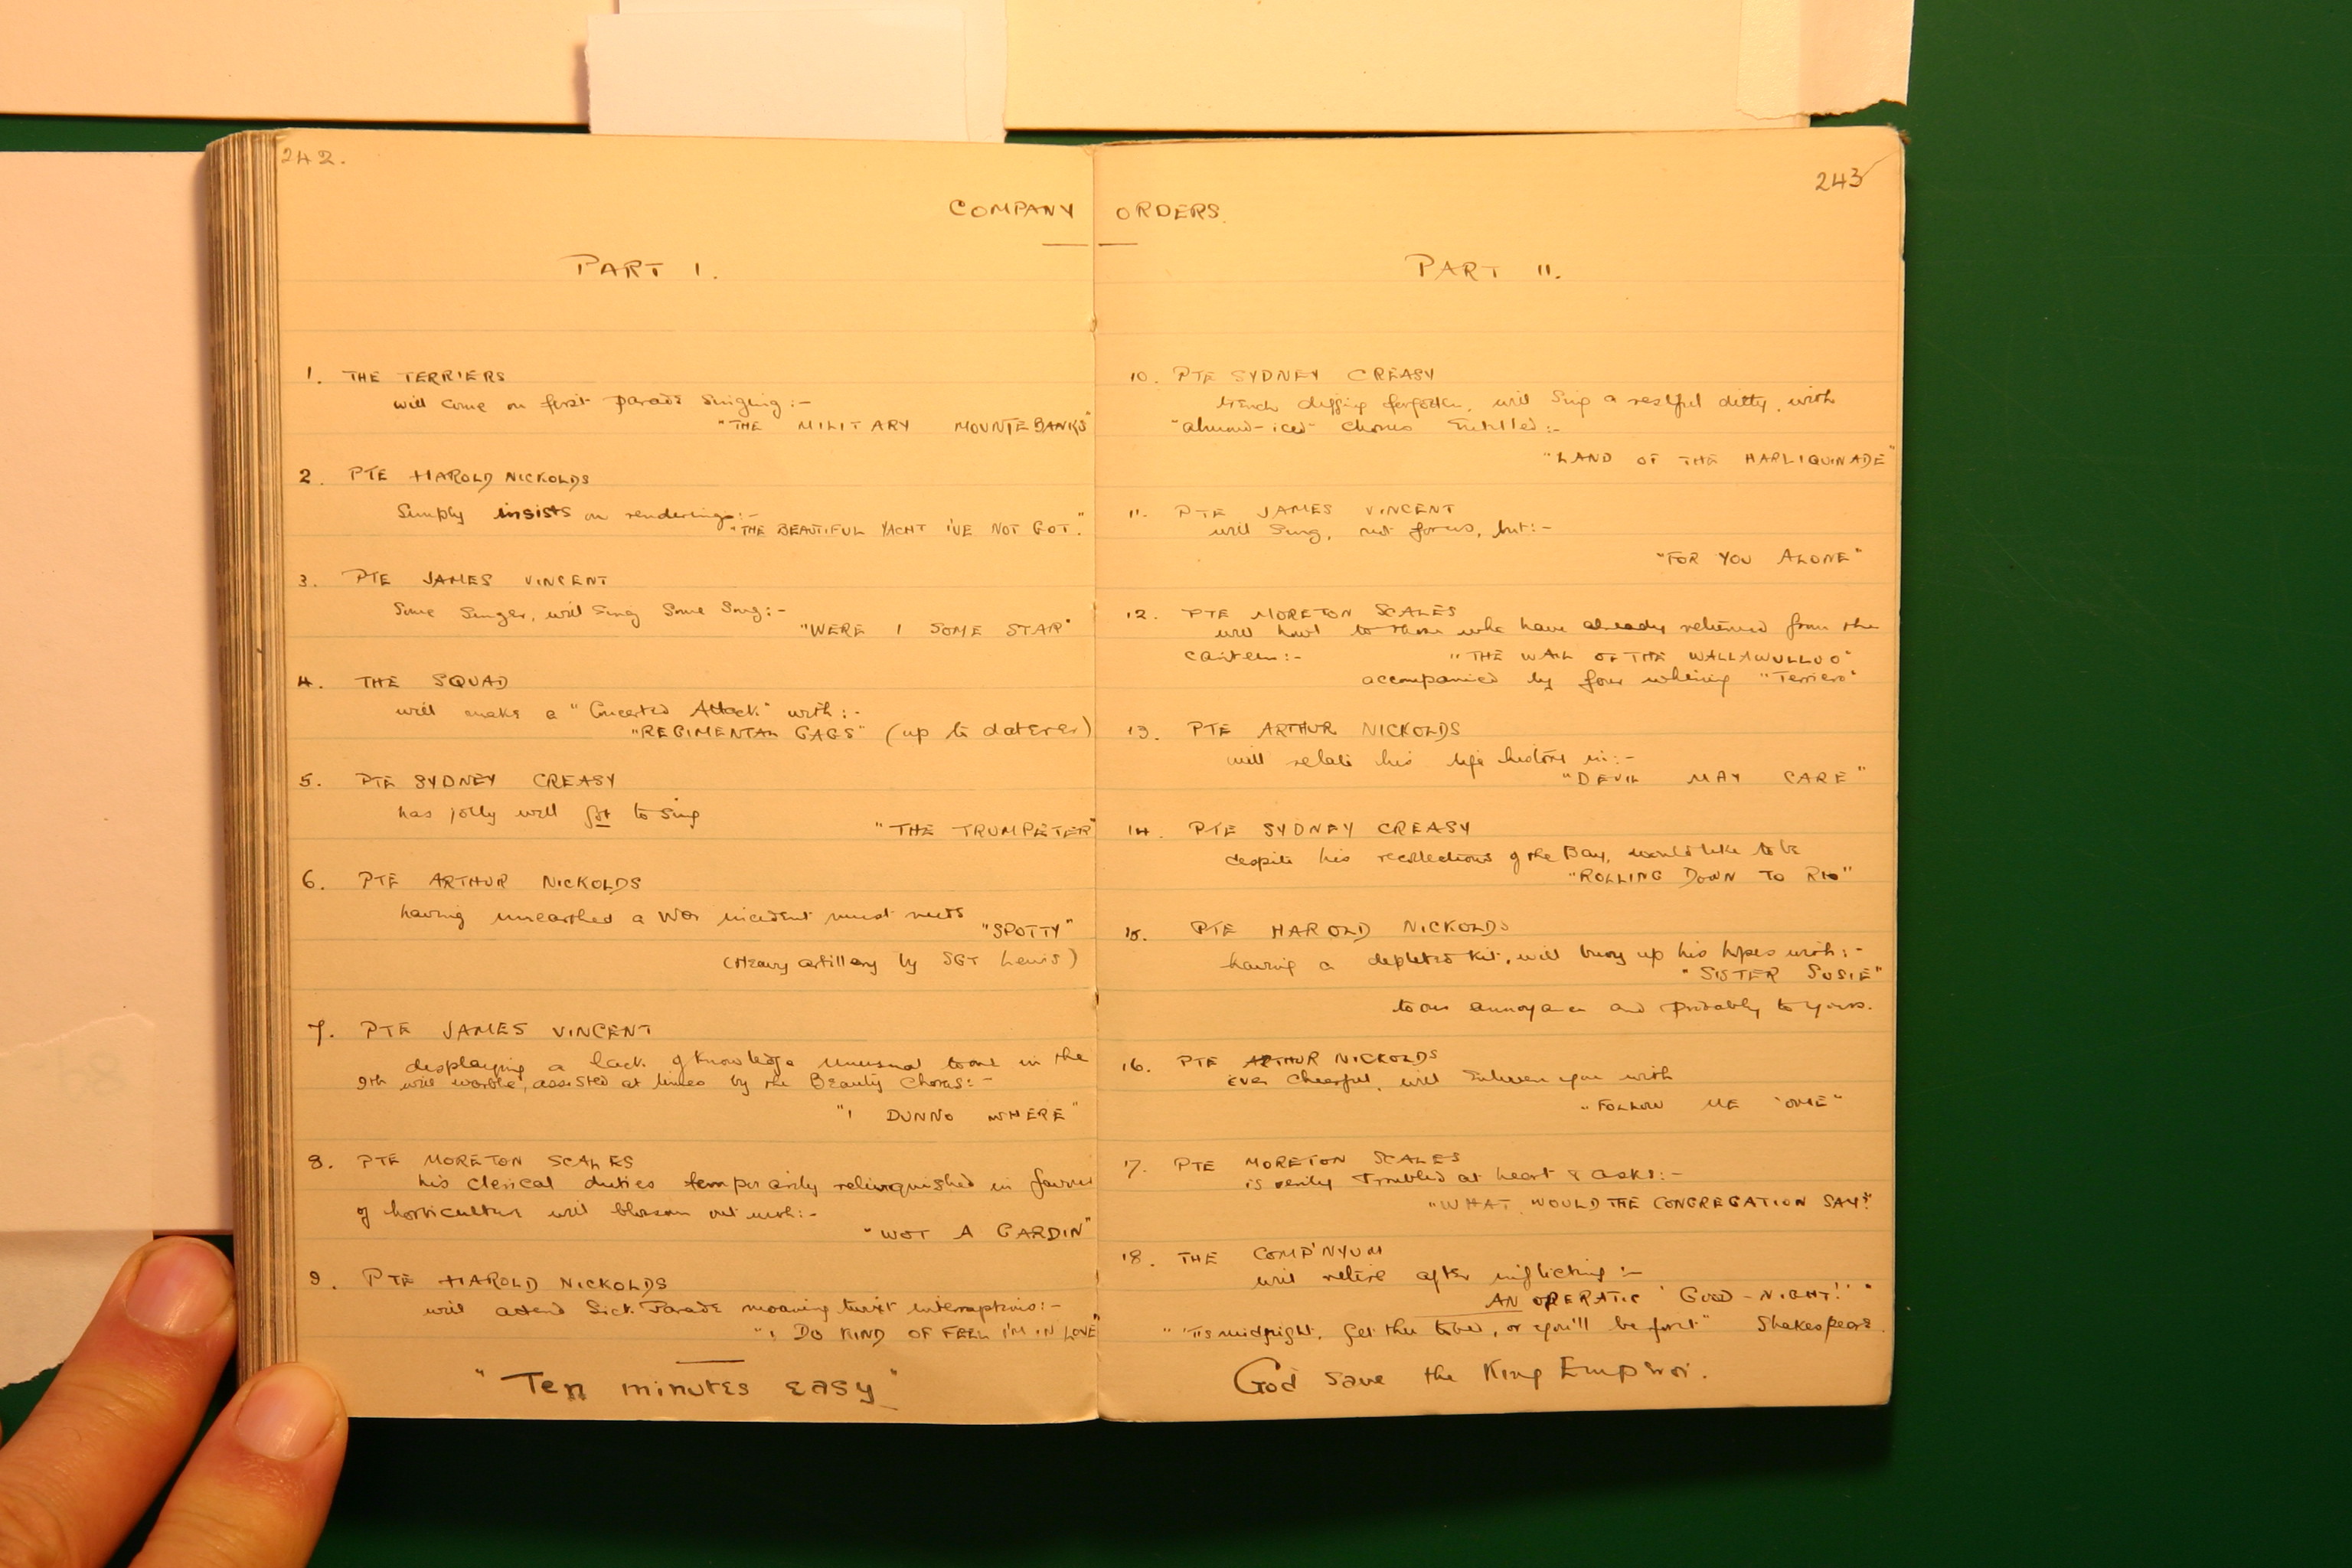 242.
COMPANY
PART I.
1. THE TERRIERS
will come on first parade singing:-
"THE MILITARY MOUNTEBANKS"
2. PTE HAROLD NICKOLDS
Simply insists on rendering:-
"THE BEAUTIFUL YACHT I'VE NOT GOT."
3. PTE JAMES VINCENT
Some Singer, will Sing Some Song:-
"WERE I SOME STAR"
4. THE SQUAD
will make a "Concerted Attack" with:-
"REGIMENTAL GAGS" (up to daterer)
5. PTE SYDNEY CREASY
has jolly well got to sing
"THE TRUMPETER"
6. PTE ARTHUR NICKOLDS
having unearthed a War incident must needs
"SPOTTY"
(Heavy artillery by SGT Lewis)
7. PTE JAMES VINCENT
displaying a lack of knowledge unusual to one in the
9th will warble, assisted at times by the Beauty Chorus:-
"I DUNNO WHERE"
8. PTE MORETON SCALES
his clerical duties temporarily relinquished in favour
of horticulture will blossom out with:-
"WOT A GARDIN"
9. PTE HAROLD NICKOLDS
will attend Sick Parade moaning twixt interruptions:-
"I DO KIND OF FEEL I'M IN LOVE"
"Ten minutes easy"
243
ORDERS.
PART II.
10. PTE SYDNEY CREASY
trench digging forgotten, will Sing a restful ditty, with
chorus Entitled:-
"LAND OF THE HARLIQUINADE"
11. PTE JAMES VINCENT
will Sing, not for us, but:-
"FOR YOU ALONE"
12. PTE MORETON SCALES
will howl to those who have already returned from the
canteen:- "THE WAIL OF THE WALLAWULLOO"
accompanied by four whining "Terriers"
13. PTE ARTHUR NICKOLDS
will relate his life history in:-
"DEVIL MAY CARE"
14. PTE SYDNEY CREASY
despite his recollections of the Bay, would like to be
"ROLLING DOWN TO RIO"
15. PTE HAROLD NICKOLDS
having a depleted kit, will buoy up his hopes with:-
"SISTER SUSIE"
to our annoyance and probably to yours.
16. PTE ARTHUR NICKOLDS
ever cheerful, will Enliven you with
"FOLLOW ME 'OME"
17. PTE MORETON SCALES
is verily Troubled at heart & asks:-
"WHAT WOULD THE CONGREGATION SAY?"
18. THE COMP'NYUM
will retire after inflicting:-
AN OPERATIC 'GOOD-NIGHT!'"
"'Tis midnight, get thee to bed, or you'll be for it" Shakespeare.
God Save the King Emperor.